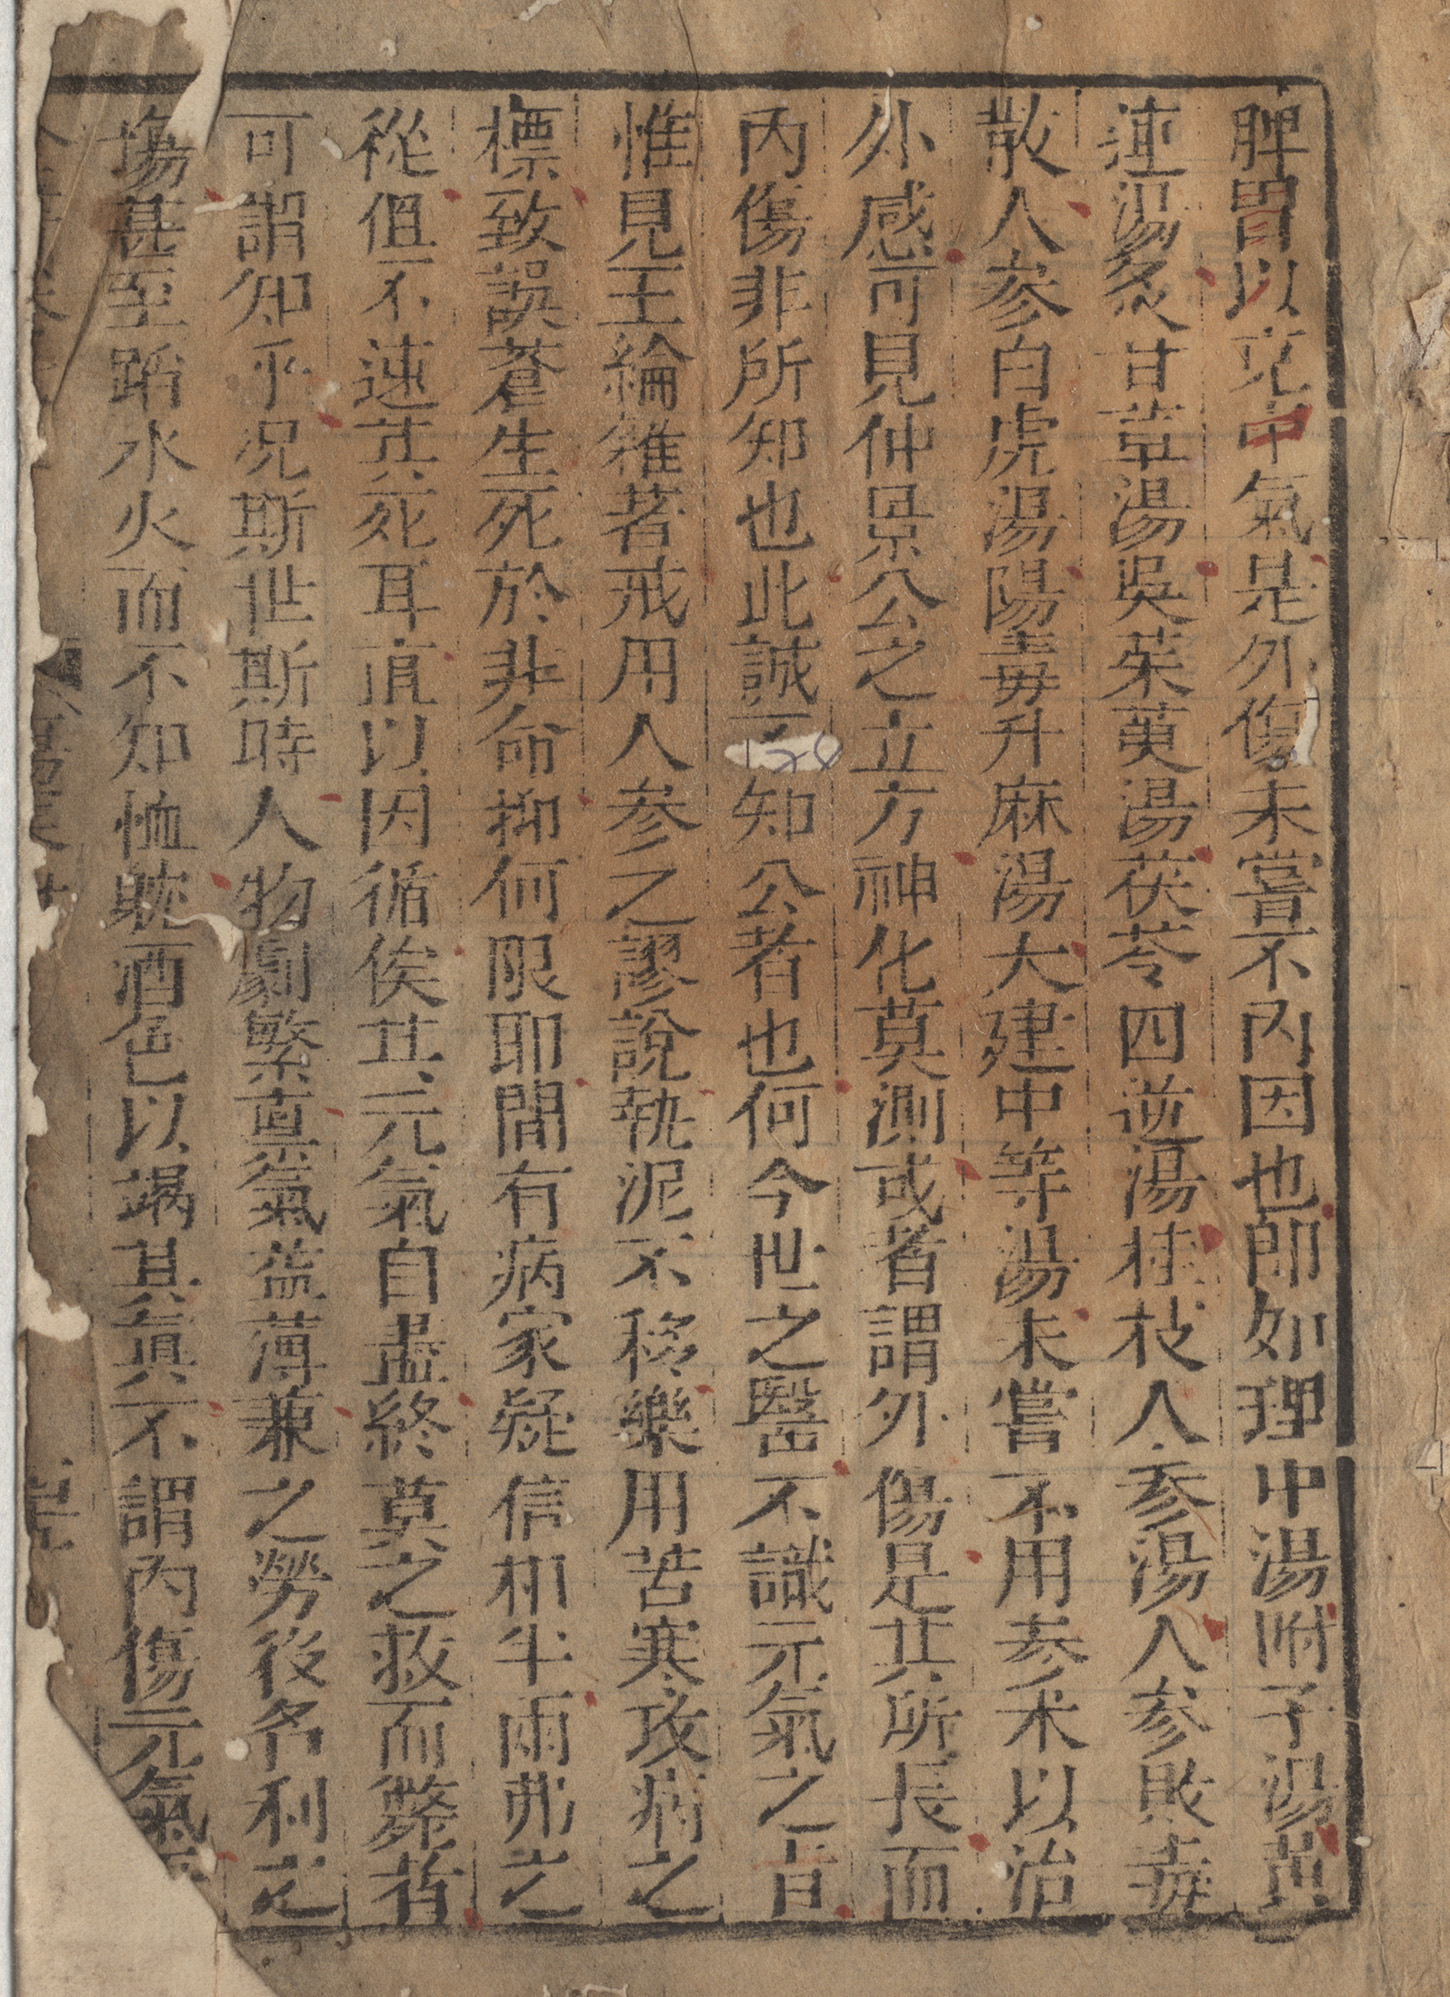 脾胃以克中氣是外傷未嘗不內因也卽如理中湯附子湯黃
連湯炙甘草湯吳茱萸湯茯苓四逆湯桂枝人參湯人參敗毒
散人參白虎湯陽毒升麻湯大建中等湯未嘗不用參朮以治
外感可見仲景公之立方神化莫測或者謂外傷是其所長而
內傷非所知也此誠不知公者也何今世之醫不識元氣之旨
惟見王綸雜著戒用人參之謬說執泥不移樂用苦寒攻病之
標致誤蒼生死於非命抑何限耶間有病家疑信相半兩弗之
從但不速其死耳直以因循俟其元氣自盡終莫之救而斃者
可謂知乎況斯世斯時人物劇繁稟氣益薄兼之勞役名利之
場甚至蹈水火而不知恤耽酒色以竭其眞不謂內傷元氣